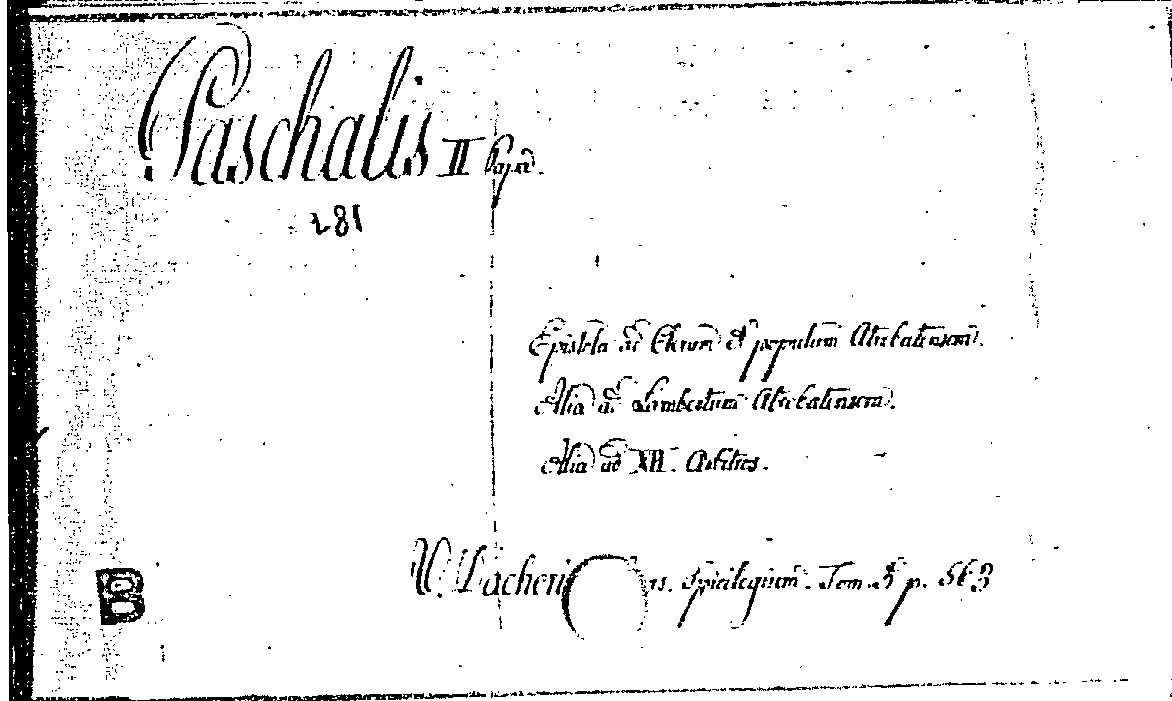 Paschalis II Papa.
281
Epistola ad Clerum et populum Atrebatensem.
Alia ad Lambertum Atrebatensem.
Alia ad XII.
V. Dacherii Spicilegium. Tom. 5 p. 563
B